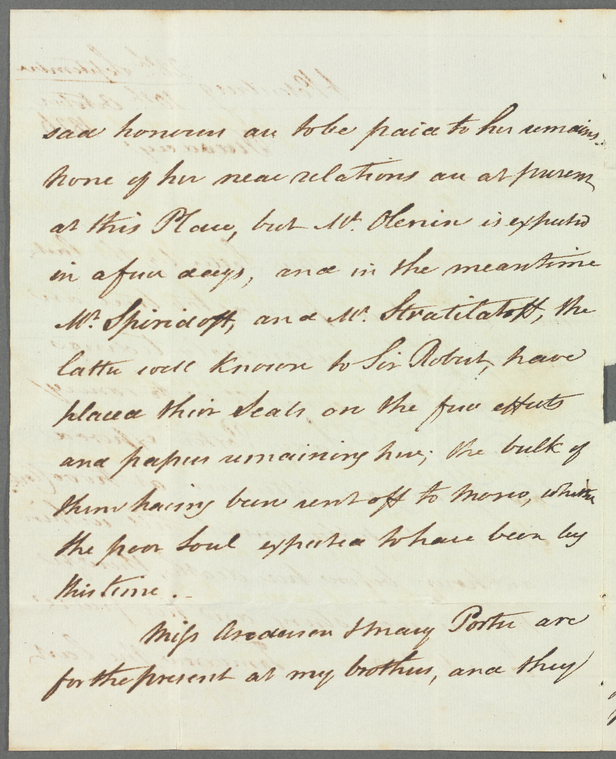 sad honours are to be paid to her remains.
None of her near relations are at present
at this Place, but Mr. Olenin is expected
in a few days, and in the meantime
Mr. Spiridoff, and Mr. Stratilatoff, the
latter well known to Sir Robert, have
placed their Seals on the few effects
and papers remaining here; the bulk of
them having been sent off to Moscow, whither
the poor Soul expected to have been by
this time.
Miss Anderson & Mary Porter are
for the present at my brothers, and they